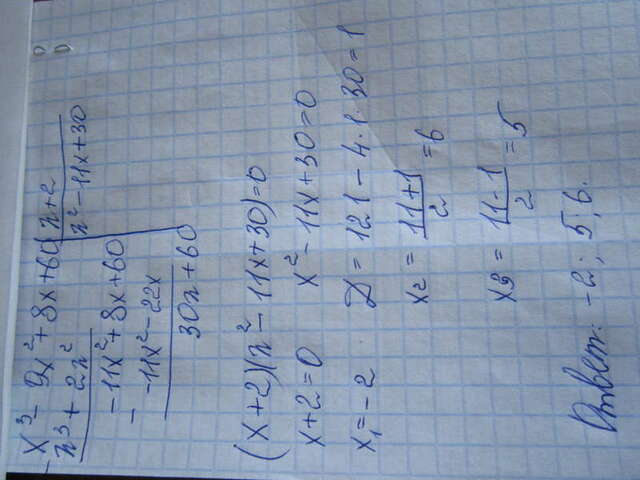 x³ - 9x² + 8x + 60 | x + 2
x³ + 2x² | x² - 11x + 30
-11x² + 8x + 60
-11x² - 22x
30x + 60
(x + 2)(x² - 11x + 30) = 0
x + 2 = 0 x² - 11x + 30 = 0
x₁ = -2 D = 121 - 4 · 1 · 30 = 1
x₂ = (11+1)/2 = 6
x₃ = (11-1)/2 = 5
Ответ: -2; 5; 6.